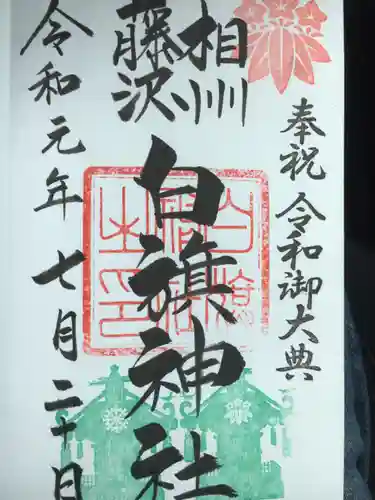 奉祝 令和御大典
相州
藤沢
白旗神社
令和元年 七月二十日
白旗神社之印